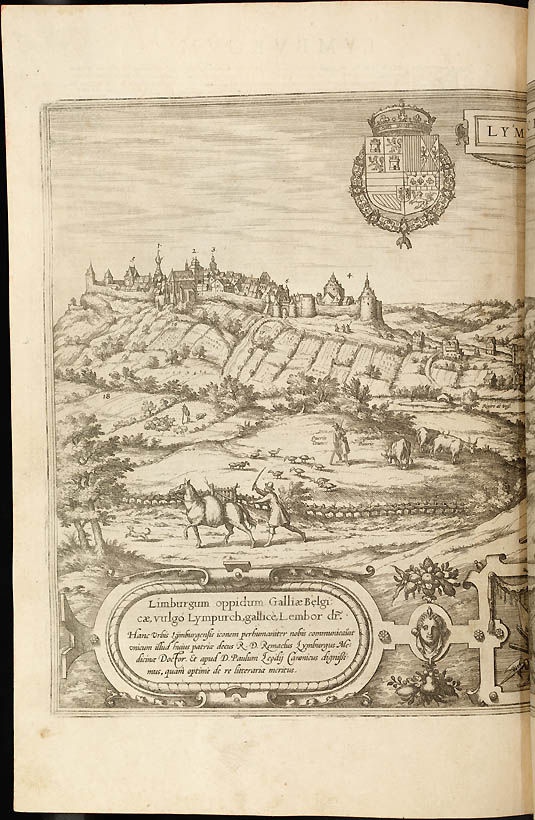 LYM
1
2
3
5
6
4
18
Limburgum oppidum Galliæ Belgi
cæ, vulgò Lympurch, gallicè, Lembor dr̃.
Hanc Urbis Lymburgensis iconem perhumaniter nobis communicabat
vnicum illud huius patriæ decus R. D. Remaclus Lymburgus Me-
dicinæ Doctor. Et apud D. Paulum Legdij Canonicus dignissi-
mus, quàm optimè de re litteraria meritus.